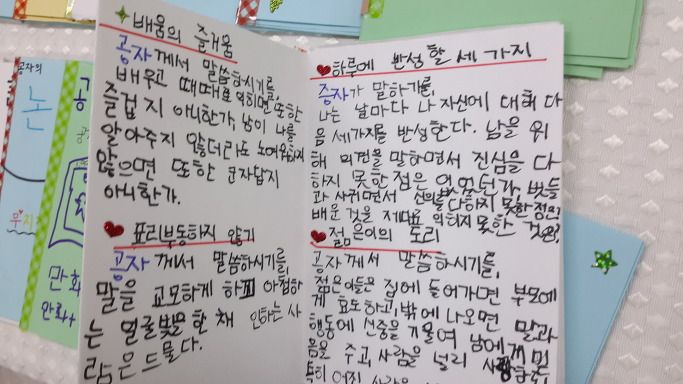 배움의 즐거움
공자께서 말씀하시기를,
배우고 때때로 익히면 또한
즐겁지 아니한가, 남이 나를
알아주지 않더라도 노여워하지
않으면 또한 군자답지
아니한가.
표리부동하지 않기
공자께서 말씀하시기를,
말을 교묘하게 하고 아첨하
는 얼굴빛을 한 채 인하는 사
람은 드물다.
하루에 반성할 세 가지
증자가 말하기를,
나는 날마다 나 자신에 대해 다
음 세가지를 반성한다. 남을 위
해 의견을 말하면서 진심을 다
하지 못한 점은 없었던가, 벗들
과 사귀면서 신의를 다하지 못한 점은
배운 것을 제때로 익히지 못한 것은,
젊은이의 도리
공자께서 말씀하시기를,
젊은이들은 집에 들어가면 부모에
게 효도하고, 밖에 나오면 말과
행동에 신중을 기울여 남에게 믿
음을 주고, 사람을 널리
특히 어진 사람을
공자의
논
만화